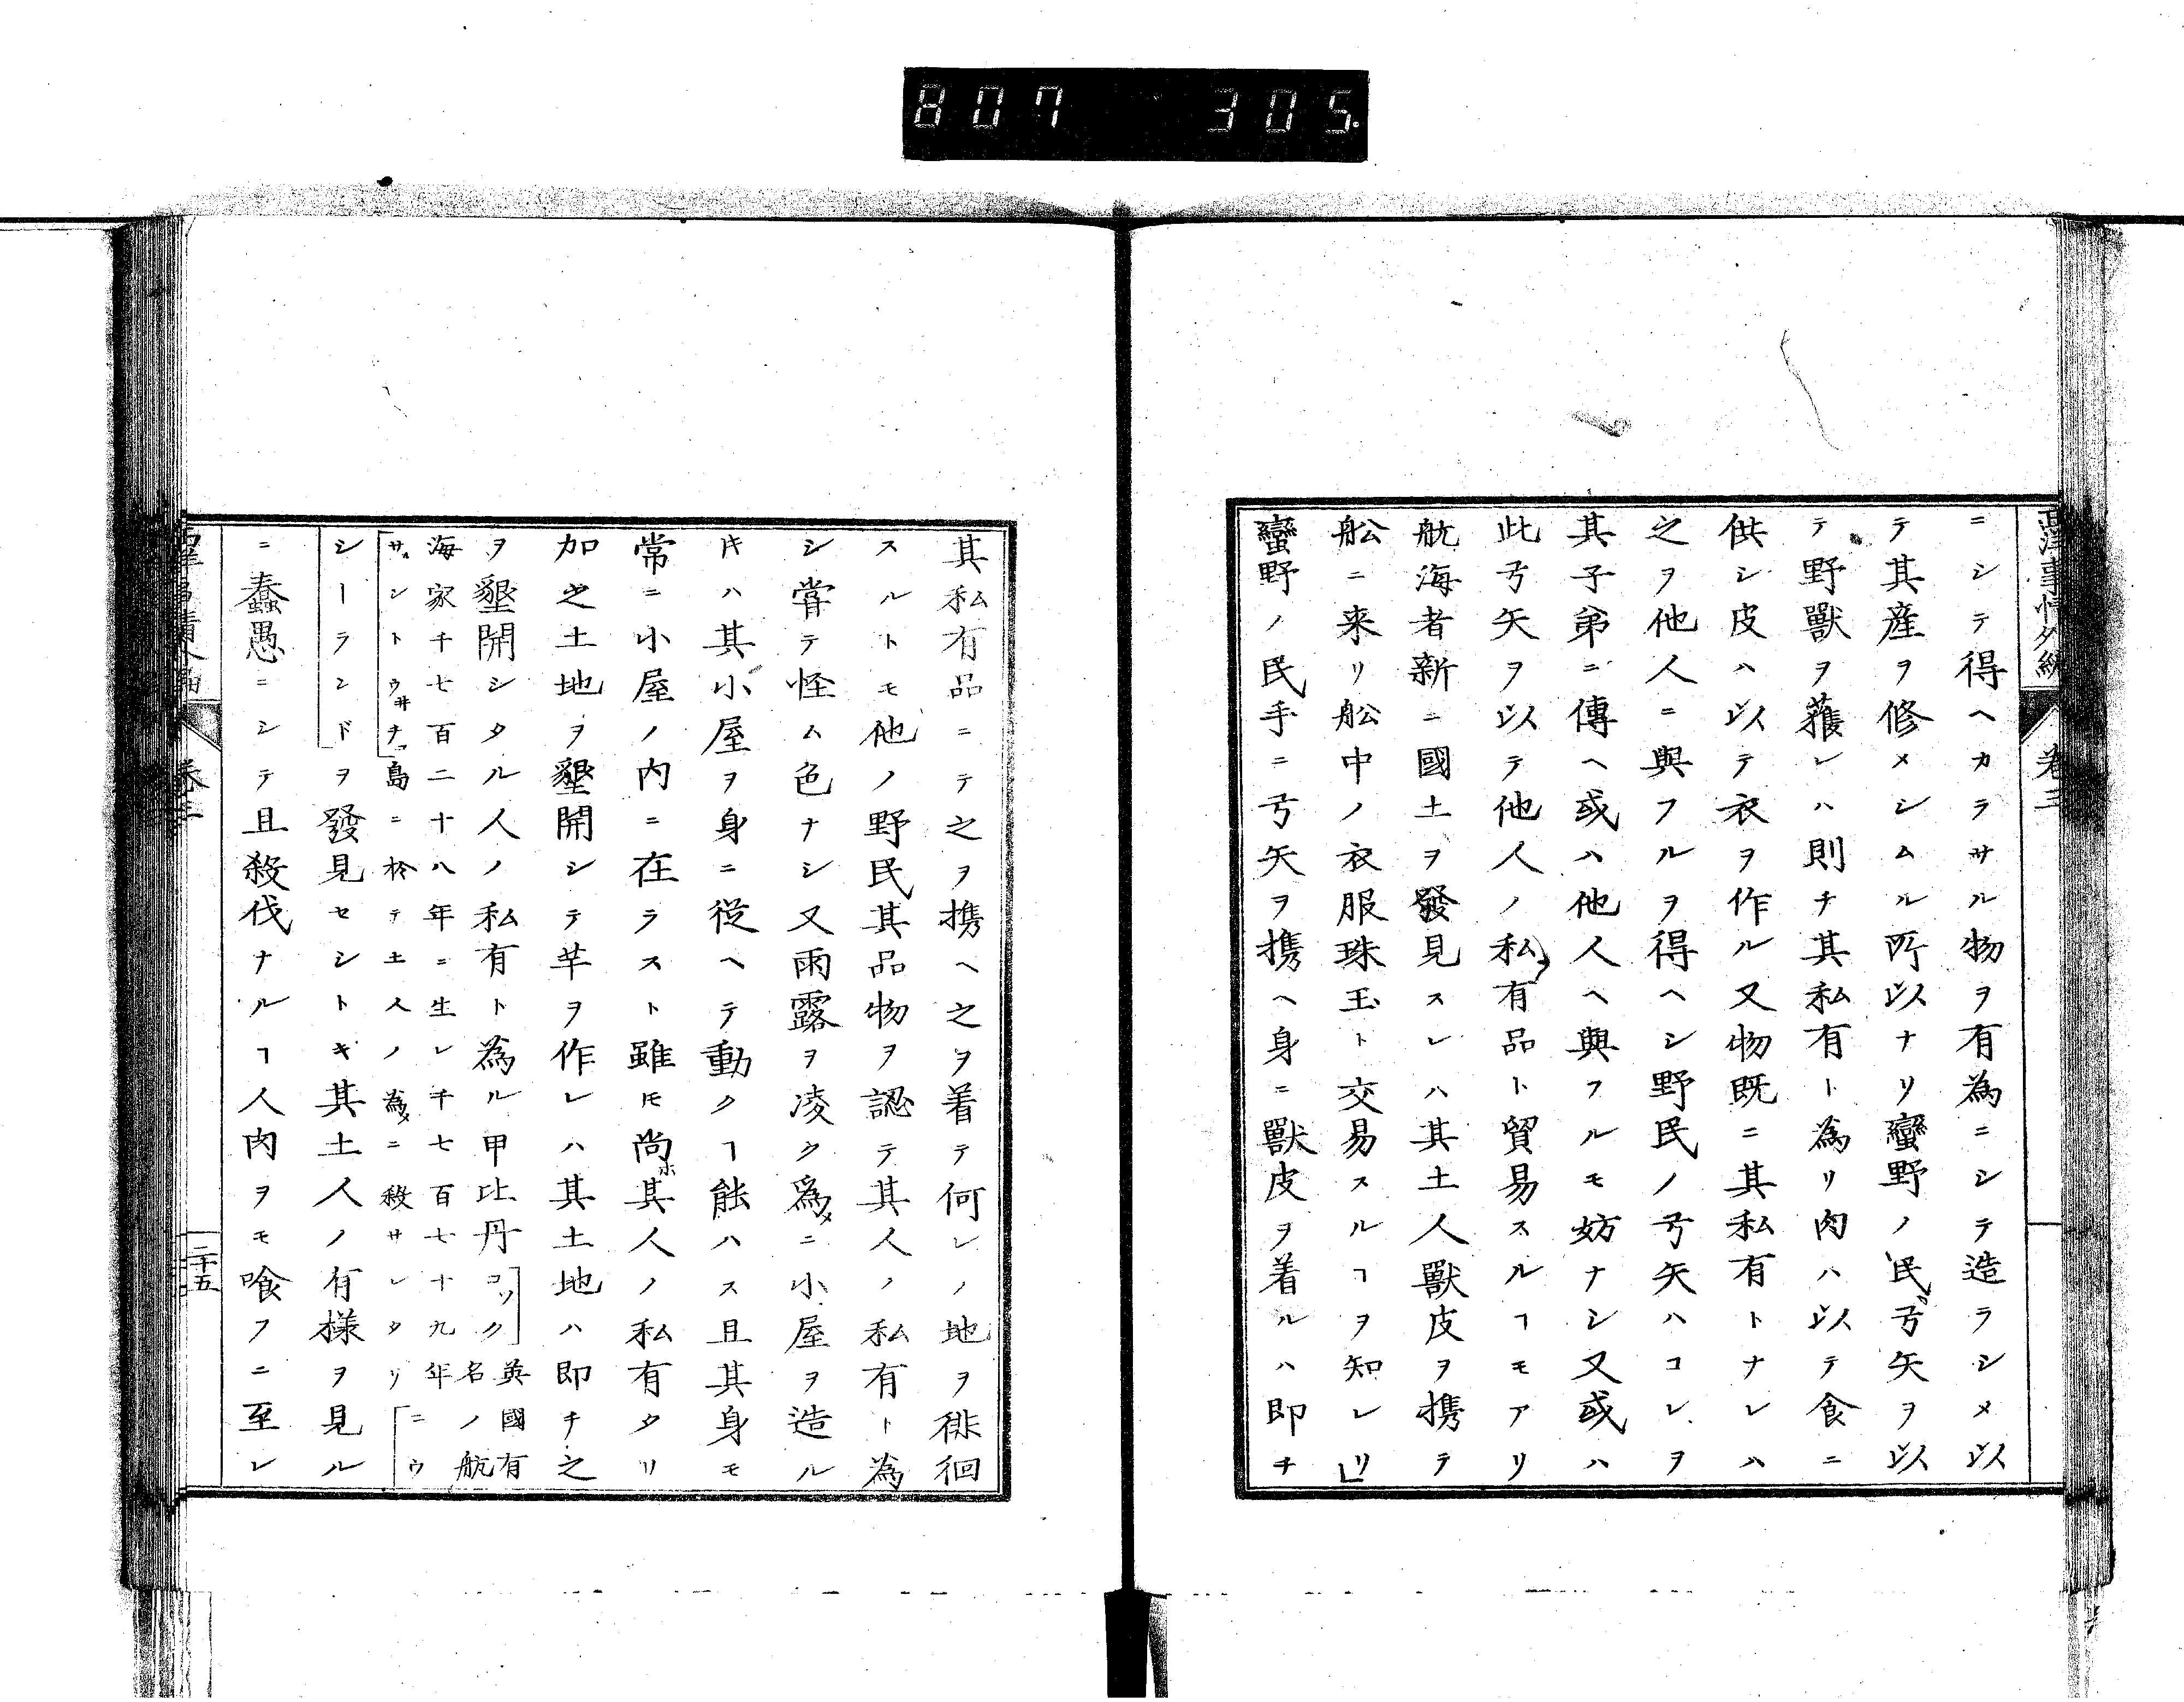 807 305
西洋事情外編 巻三
ニシテ得ヘカラサル物ヲ有為ニシテ造ラシメ以
テ其産ヲ修メシムル所以ナリ蠻野ノ民弓矢ヲ以
テ野獸ヲ獲レハ則チ其私有ト為リ肉ハ以テ食ニ
供シ皮ハ以テ衣ヲ作ル又物既ニ其私有トナレハ
之ヲ他人ニ與フルヲ得ヘシ野民ノ弓矢ハコレヲ
其子弟ニ傳ヘ或ハ他人ヘ與フルモ妨ナシ又或ハ
此弓矢ヲ以テ他人ノ私有品ト貿易スルヿモアリ
航海者新ニ國土ヲ發見スレハ其土人獸皮ヲ携テ
舩ニ来リ舩中ノ衣服珠玉ト交易スルヿヲ知レリ」
蠻野ノ民手ニ弓矢ヲ携ヘ身ニ獸皮ヲ着ルハ即チ
其私有品ニテ之ヲ携ヘ之ヲ着テ何レノ地ヲ徘徊
スルトモ他ノ野民其品物ヲ認テ其人ノ私有ト為
シ甞テ怪ム色ナシ又雨露ヲ凌ク爲メニ小屋ヲ造ル
𪜈ハ其小屋ヲ身ニ從ヘテ動クヿ能ハス且其身モ
常ニ小屋ノ内ニ在ラスト雖𪜈尚ホ其人ノ私有タリ
加之土地ヲ墾開シテ芋ヲ作レハ其土地ハ即チ之
ヲ墾開シタル人ノ私有ト為ル甲比丹「コック」英國有
名ノ航
海家千七百二十八年ニ生レ千七百七十九年
「サンントウ井チ」島ニ於テ土人ノ為メニ殺サレタリ「ニウ
シーランド」ヲ發見セシトキ其土人ノ有様ヲ見ル
ニ蠢愚ニシテ且殺伐ナルヿ人肉ヲモ喰フニ至レ
巻三
二十五